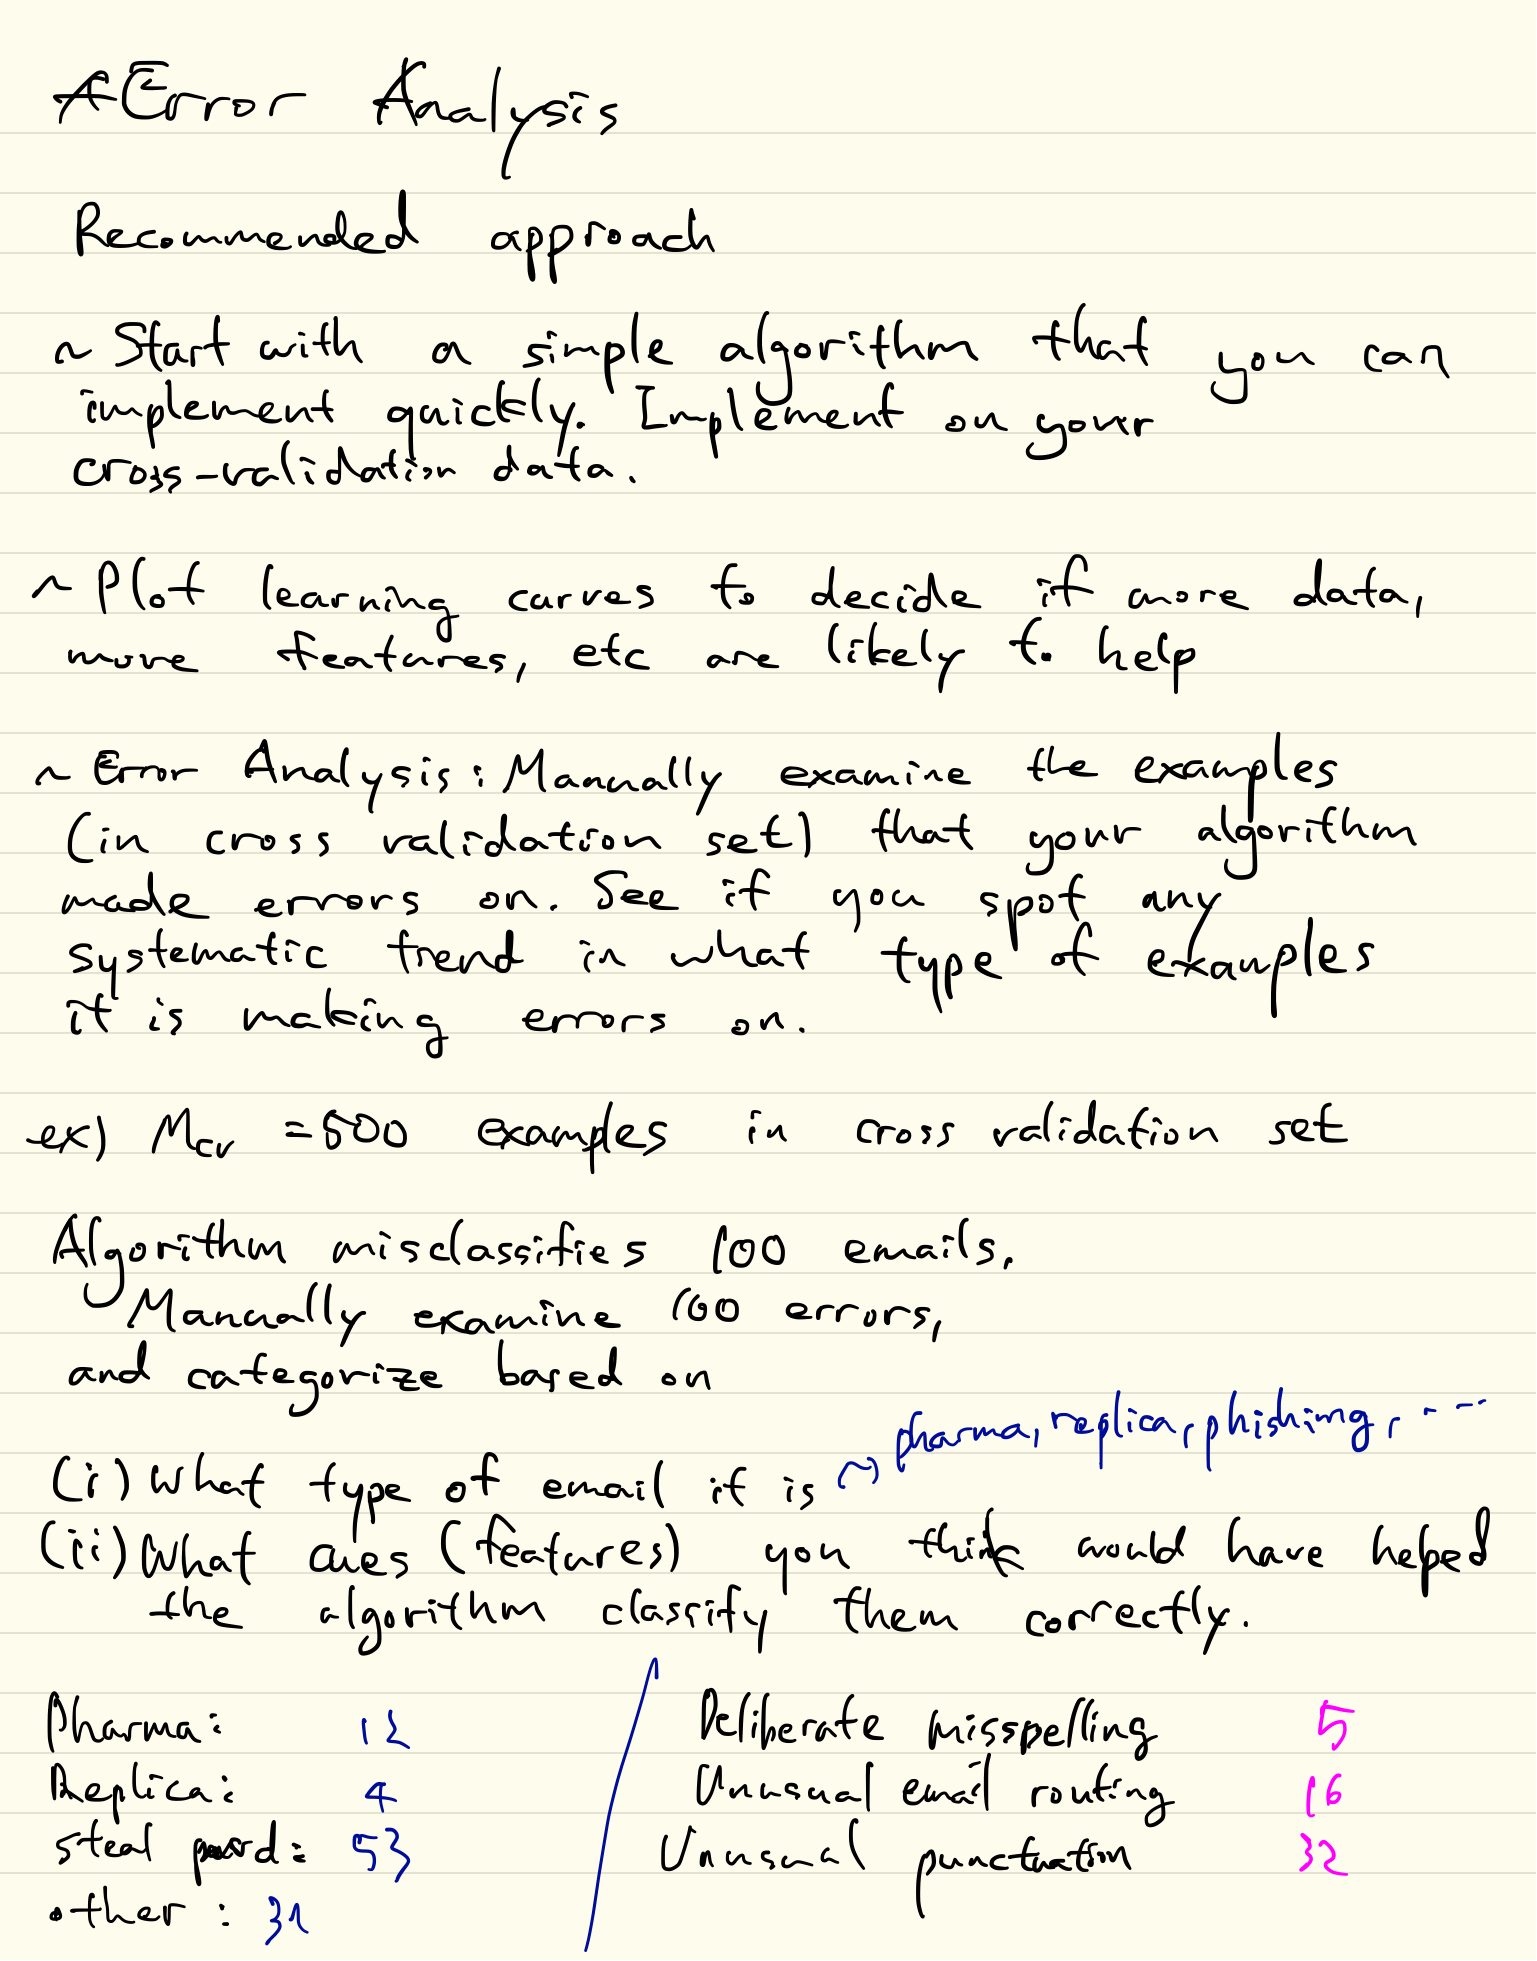 Error Analysis
Recommended approach
~ Start with a simple algorithm that you can
implement quickly. Implement on your
cross-validation data.
~ Plot learning curves to decide if more data,
more features, etc are likely to help
~ Error Analysis: Manually examine the examples
(in cross validation set) that your algorithm
made errors on. See if you spot any
systematic trend in what type of examples
it is making errors on.
ex) Mcv = 500 examples in cross validation set
Algorithm misclassifies 100 emails.
Manually examine 100 errors,
and categorize based on
pharma, replica, phishimg, ....
(i) What type of email it is
(ii) What cues (features) you think would have helped
the algorithm classify them correctly.
Pharma: 12 Deliberate misspelling 5
Replica: 4 Unusual email routing 16
steal : 53 Unusual punctuation 32
other : 31